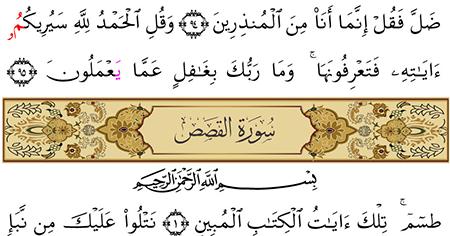 ضَلَّ فَقُلْ إِنَّمَا أَنَا۠ مِنَ ٱلْمُنذِرِينَ ﴿٩٤﴾ وَقُلِ ٱلْحَمْدُ لِلَّهِ سَيُرِيكُمُۥ
ءَايَٰتِهِۦ فَتَعْرِفُونَهَا ۚ وَمَا رَبُّكَ بِغَٰفِلٍ عَمَّا يَعْمَلُونَ ﴿٩٥﴾
سُورَةُ القَصَصِ
بِسْمِ ٱللَّهِ ٱلرَّحْمَٰنِ ٱلرَّحِيمِ
طسٓمٓ ۚ تِلْكَ ءَايَٰتُ ٱلْكِتَٰبِ ٱلْمُبِينِ ﴿١﴾ نَتْلُوا۟ عَلَيْكَ مِن نَّبَإِ